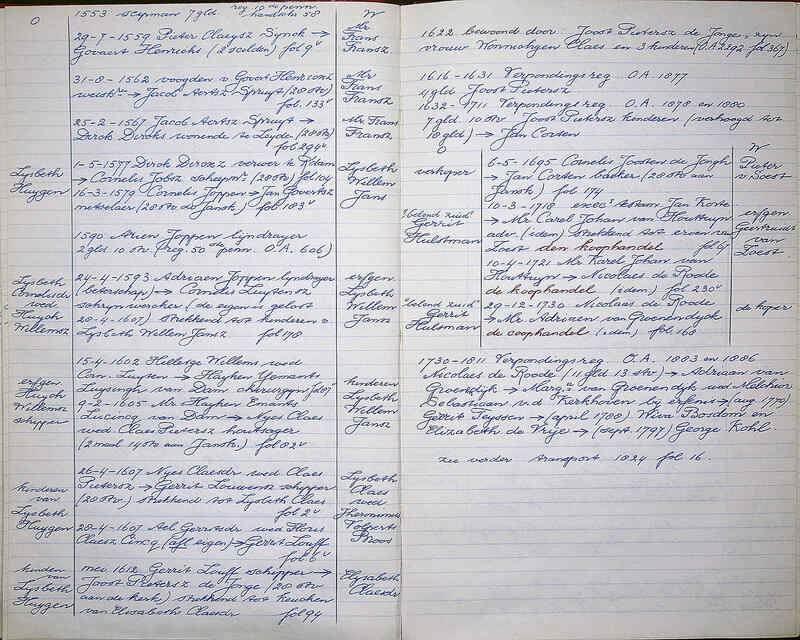 O
1553 scipman 7 gld. reg. 10de penn. handschr 58
W
29-7-1559 Pieter Claeysz Synck →
Govaert Henricks (2 scilden) fol 9v
Mr
Frans
Fransz
31-8-1562 voogden v Govert Henricxz
→ Jacob Aertsz Spruyt (20 stv)
fol. 133v
Mr
Frans
Fransz
25-2-1567 Jacob Aertsz Spruyt →
Dirck Dircks wonende te Leyde (20 stv)
fol 294v
Mr Frans
Fransz
Lysbeth
Huygen
1-5-1577 Dirck Dircxz verwer te R'dam
→ Cornelis Jobsz schepmr. (20 stv) fol 104
16-3-1579 Cornelis Joppen → Jan Govertsz
metselaer (20 stv de Jansk) fol 183v
Lysbeth
Willem
Jans
1590 Arien Joppen lijndrayer
2 gld 10 stv. (reg. 50ste penn. O.A. 606)
Lysbeth
Cornelisdr
wed
Huych
Willemsz
24-4-1593 Adriaen Joppen lijndrayer
(bekerschap) → Cornelis Luytensz
schrynwercker (de eigen is gelost
20-4-1607) strekkend tot kinderen v
Lysbeth Willem Jansz fol 178
erfgen.
Lysbeth
Willem
Jansz
erfgen
Huych
Willemsz
schipper
15-4-1602 Hilletge Willems, wed
Corn. Luyten → Huyken Gemants
Luysingh van Dam
9-2-1605 Mr Huyken Emans
Lucincq van Dam → Nyes Claes
wed Claes Pietersz houtzager
(2 mael 14 stv aan Jansk.) fol 82v
kinderen
Lysbeth
Willem
Jansz
kinderen
van
Lysbeth
Huygen
26-4-1607 Nyes Claesdr wed Claes
Pietersz → Gerrit Louwensz schipper
(20 stv.) strekkend tot Lysbeth Claes
fol 2v
28-4-1607 Ael Gerritsdr wed Floris
Claesz Cincq (afl eigen) → Gerrit Louff
fol. 6v
Lysbeth
Claes
wed
Jheronimus
Volkerts
Moos
kinderen
van
Lysbeth
Huygen
mei 1612 Gerrit Louff schipper →
Joost Pietersz de Jonge (20 stv
aan de kerk) strekkend tot keucken
van Elisabeth Claesdr fol 94
Elysabeth
Claesdr
1622 bewoond door: Joost Pietersz de Jonge, zyn
vrouw Wonnetgen Claes en 3 kinderen (O.A. 2292 fol 367)
1616-1631 Verpondingsreg. O.A. 1877
4 gld Joost Pietersz
1632-1711 Verpondingsreg. O.A. 1878 en 1880
7 gld. 10 stv. Joost Pietersz kinderen (verhoogd tot
10 gld) → Jan Corten
O
W
verkoper
6-5-1695 Cornelis Joosten de Jongh
→ Jan Corten backer (20 stv aan
Jansk) fol 174
Pieter
v Soest
"belend zuid"
Gerrit
Hulsman
10-3-1718 execs testam. Jan Korte
→ Mr Carel Johan van Houttuyn
adv. (idem) strekkend tot erven van
Zoest den koophandel fol 67
10-4-1721 Mr Karel Johan van
Houttuyn → Nicolaes de Roode
de koophandel (idem) fol 230v
erfgen
Geertruidt
van
Zoest.
"belend zuid"
Gerrit
Hulsman
29-12-1730 Nicolaes de Roode
→ Mr Adriaen van Groenendyck
de coophandel (idem) fol 168
de koper
1730-1811 Verpondingsreg. O.A. 1883 en 1886
Nicolaes de Roode (11 gld 13 stv) → Adriaan van
Groenedijk → Marga van Groenendyk wed Melchior
Sebastiaan v.d Kerkhoven bij erfenis → (aug 1770)
Gerrit Teyssen → (april 1788) Wiva Bosdom en
Elizabeth de Vrije → (sept. 1797) George Kohl.
zie verder transport 1824 fol 16.